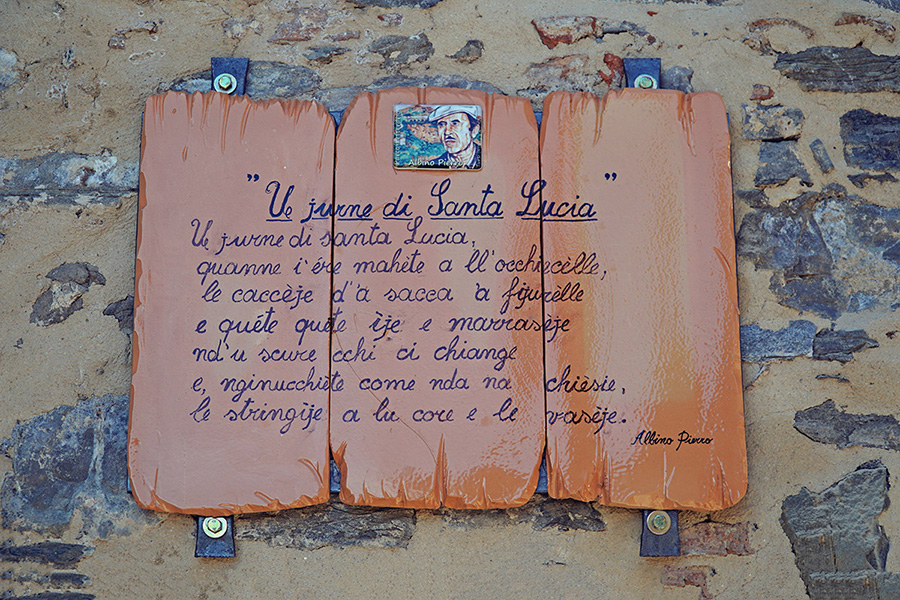 Albino Pierro
" U jurne di Santa Lucia "
U jurne di santa Lucia,
quanne i' ére mahète a ll'occhiecèlle,
le caccèje d'à sacca 'a fijurèlle
e quéte quéte ìje e marrasèje
nd'u scure cchi ci chiange
e, nginucchiète come nda na chièsie,
le stringìje a lu core e le vasèje.
Albino Pierro